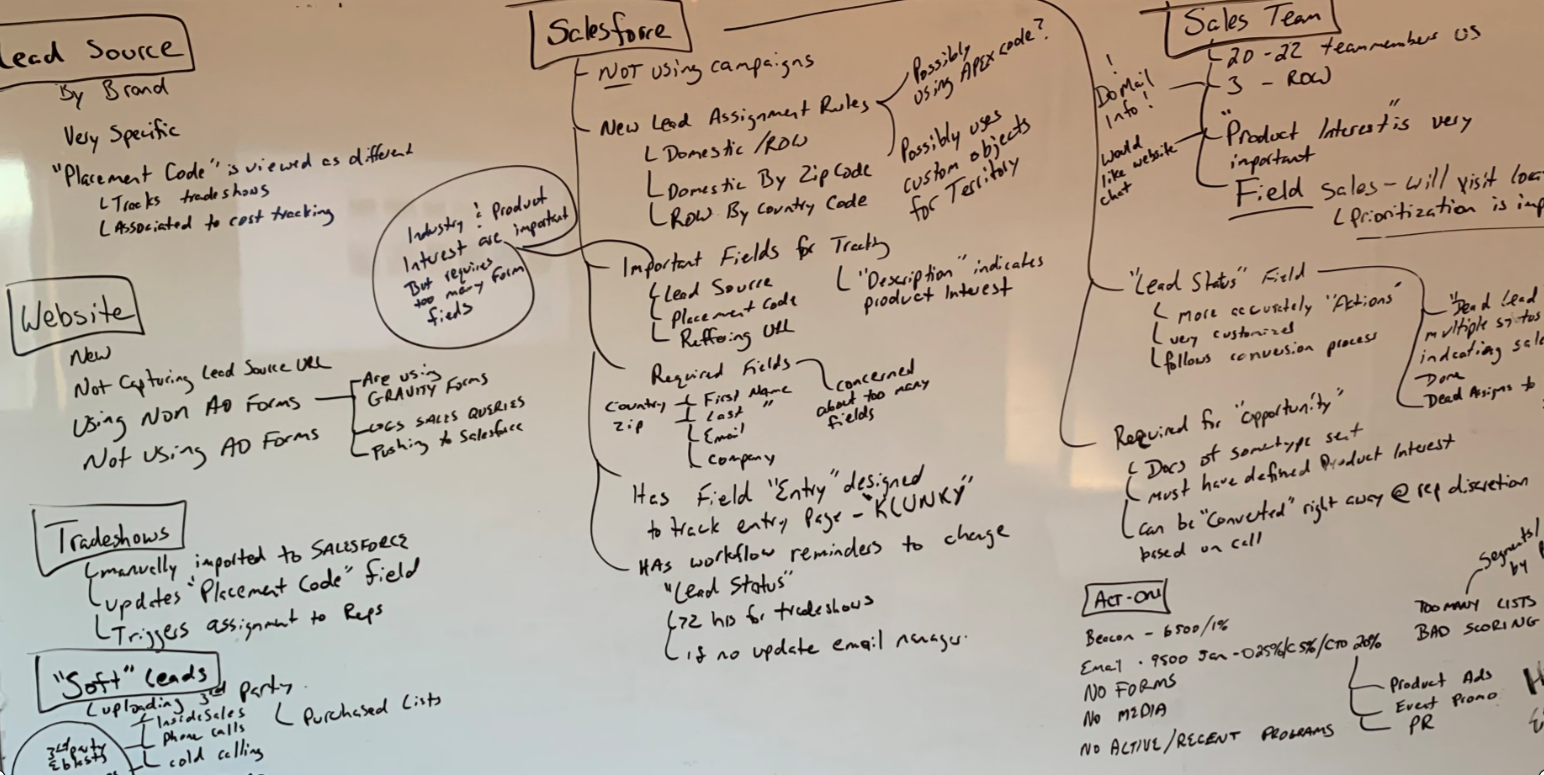 Lead Source
By Brand
Very Specific
"Placement Code" is viewed as different
Tracks tradeshows
Associated to cost tracking
Website
New
Not Capturing Lead Source URL
Using Non AO Forms
Not Using AO Forms
Are using
GRAVITY Forms
LOGS SALES QUERIES
Pushing to Salesforce
Tradeshows
manually imported to SALESFORCE
updates "Placement Code" field
Triggers assignment to Reps
"Soft" Leads
uploading 3rd party
InsideSales
Phone calls
cold calling
Purchased Lists
3rd party
eblasts
Industry & Product
Interest are important
But requires
too many Form
fields
Salesforce
NOT using campaigns
New Lead Assignment Rules
Domestic /ROW
Domestic By Zip Code
ROW By Country Code
Possibly
using APEX code?
Possibly uses
custom objects
for Territory
Important Fields for Tracking
Lead Source
Placement Code
Reffering URL
"Description" indicates
product Interest
Required Fields
Country
Zip
First Name
Last "
Email
company
concerned
about too many
fields
Has Field "Entry" designed
to track entry Page - "KLUNKY"
HAs workflow reminders to change
"Lead Status"
72 hrs for tradeshows
if no update email manager.
Sales Team
20-22 teammembers US
3 - ROW
"Product Interest" is very
important
Field Sales - will visit
Prioritization is
!
Do Mail
Info!
would
like website
chat
"Lead Status" Field
more accurately "Actions"
very customized
follows conversion process
"Dead Lead
multiple status
indicating
Done
Dead Assigns to
Required for "Opportunity"
Docs of sometype sent
must have defined Product Interest
can be "Converted" right away @ rep discretion
based on call
ACT-ON
Beacon - 6500/1%
Email . 9500 Jan - 025%/C5%/CTO 20%
NO FORMS
No MEDIA
NO ACTIVE/RECENT PROGRAMS
Product Ads
Event Promo
PR
Segments/
by
TOO MANY LISTS
BAD SCORING